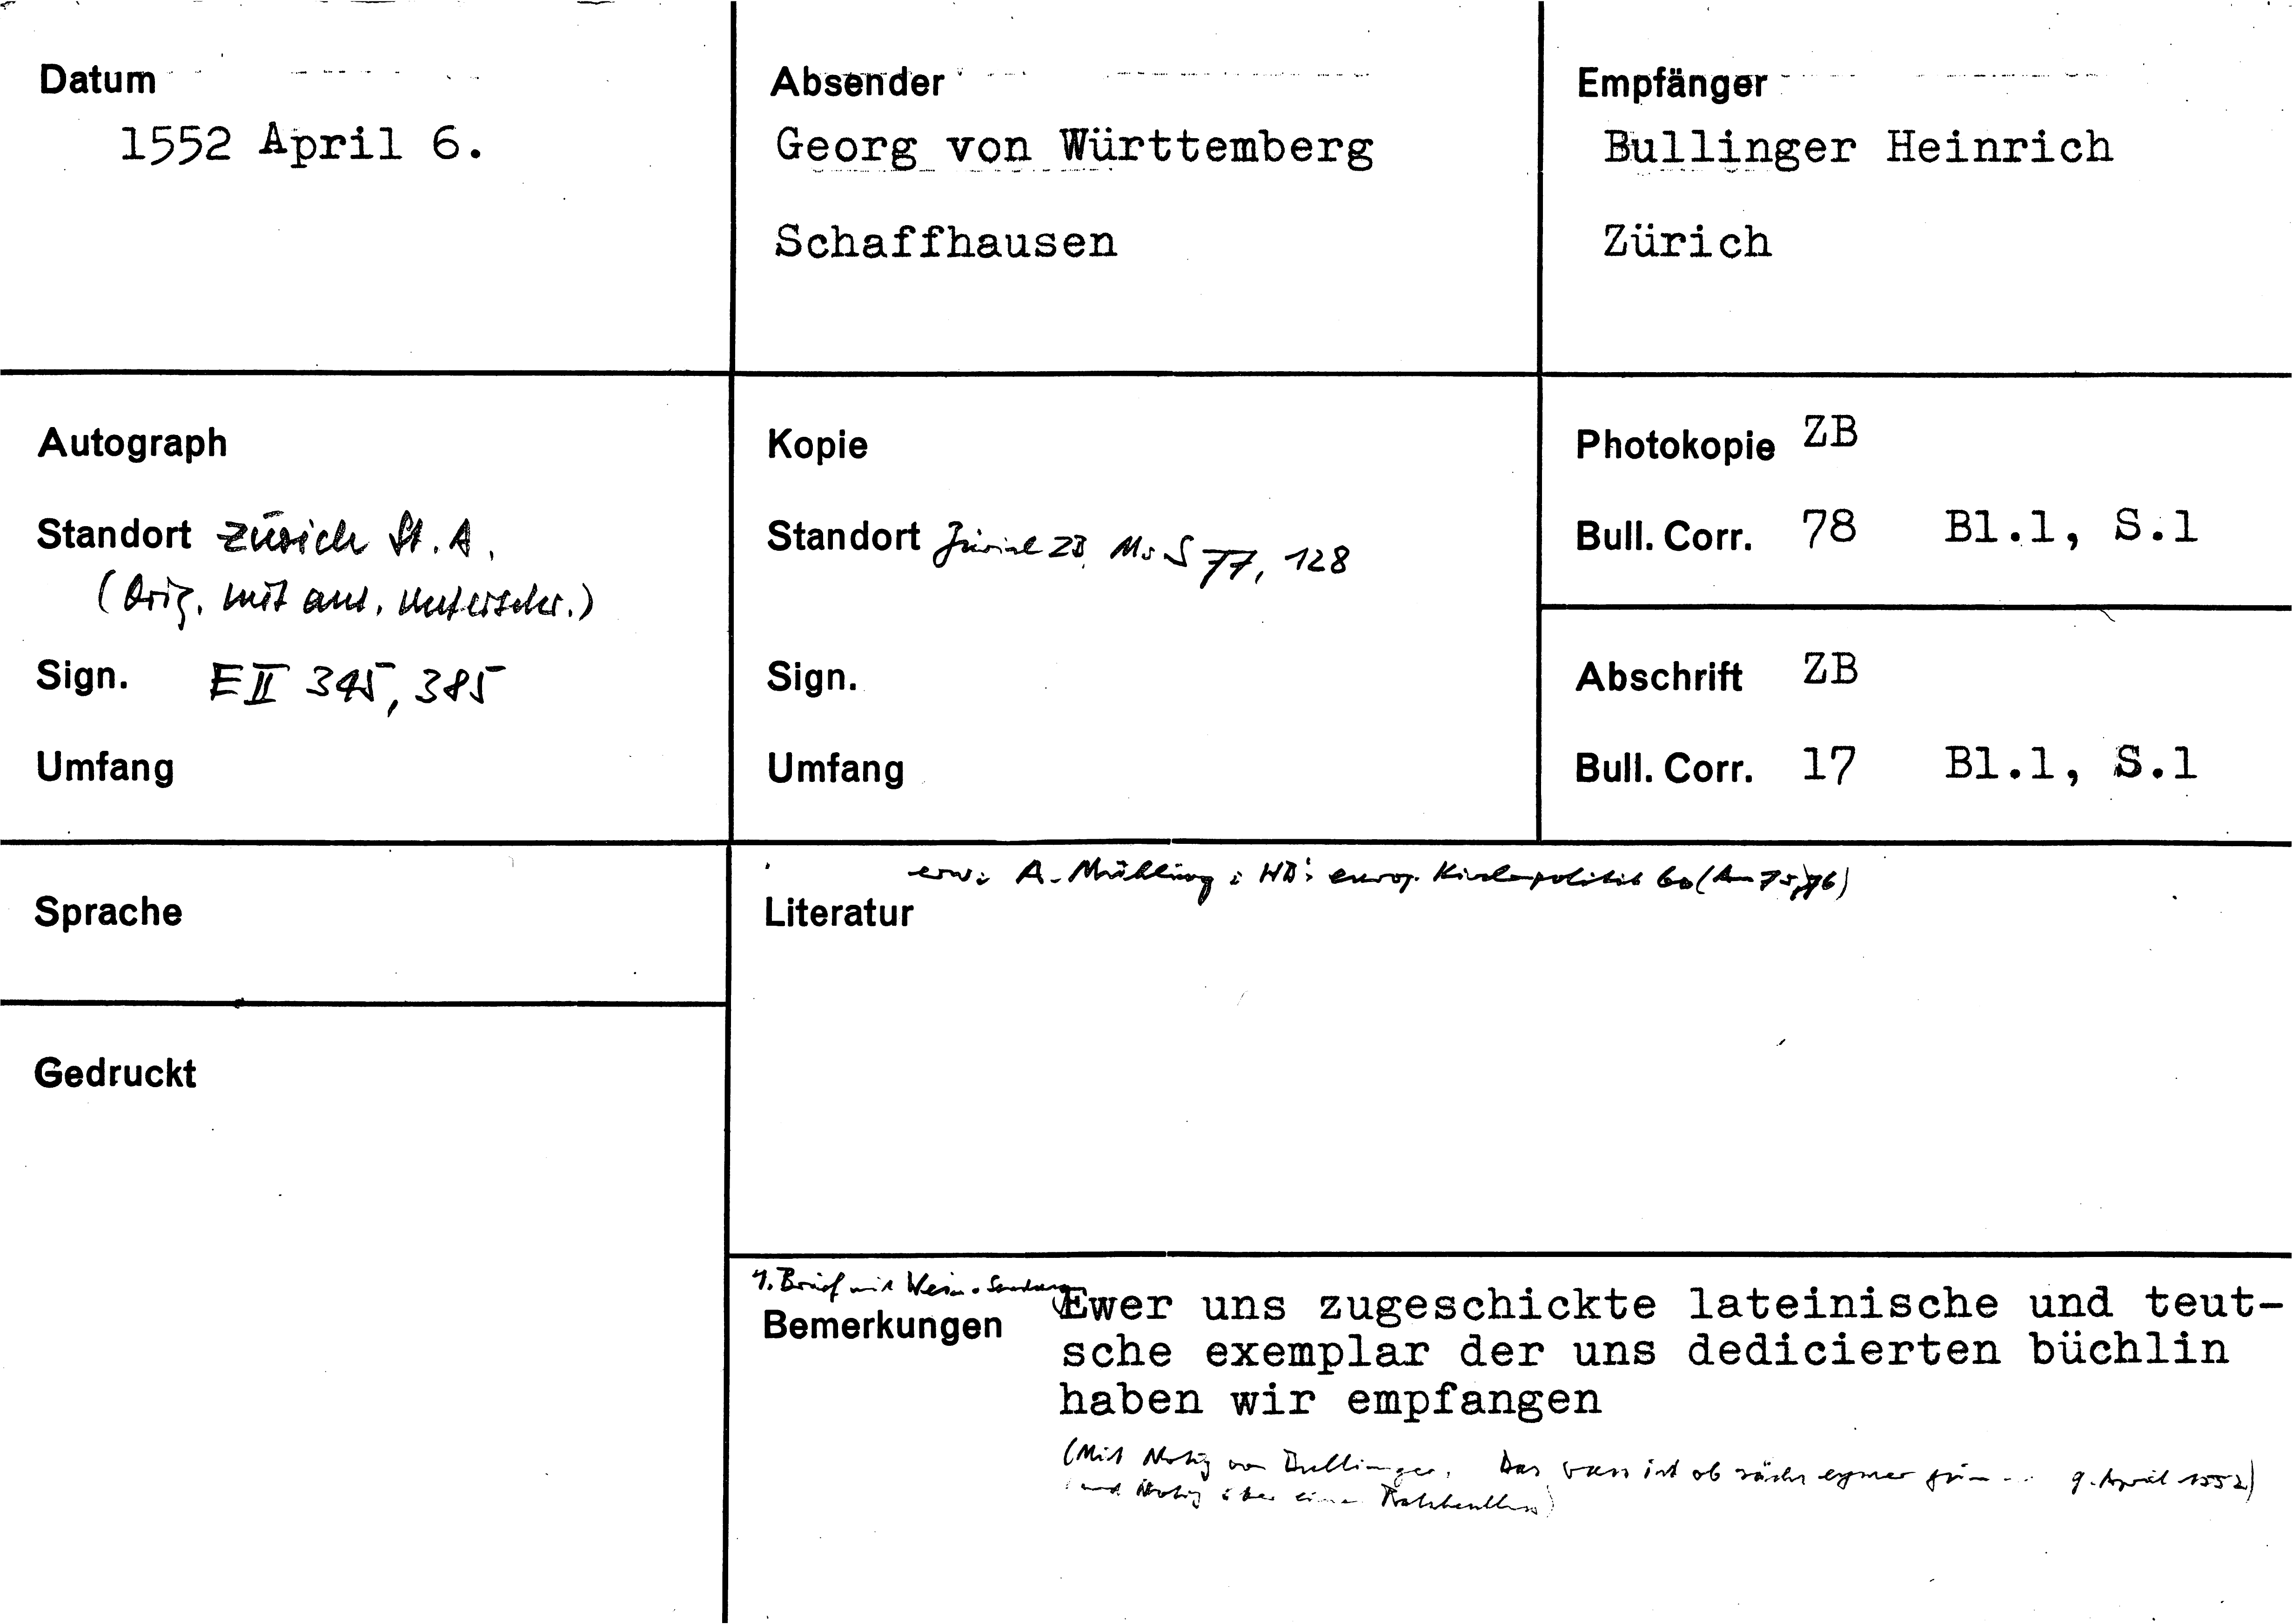 Datum
1552 April 6.
Absender
Georg von Württemberg
Schaffhausen
Empfänger
Bullinger Heinrich
Zürich
Autograph
Standort Zürich St. A.
(Orig. mit aut. Unterschr.)
Sign. E II 345, 385
Umfang
Kopie
Standort Zürich ZB Ms S 77, 128
Sign.
Umfang
Photokopie ZB
Bull. Corr. 78 Bl.1, S.1
Abschrift ZB
Bull. Corr. 17 Bl.1, S.1
Sprache
Gedruckt
erw: A. Mühling: HB's europ. Kirchenpolitik 60 (Am 75, 76)
Literatur
1. Brief mit Wein-Sendung
Bemerkungen
Ewer uns zugeschickte lateinische und teut-
sche exemplar der uns dedicierten büchlin
haben wir empfangen
(Mit Notiz von Bullinger. Das vass ist ob eymer 9. April 1552)
und Notiz über einen Ratsbeschluss)